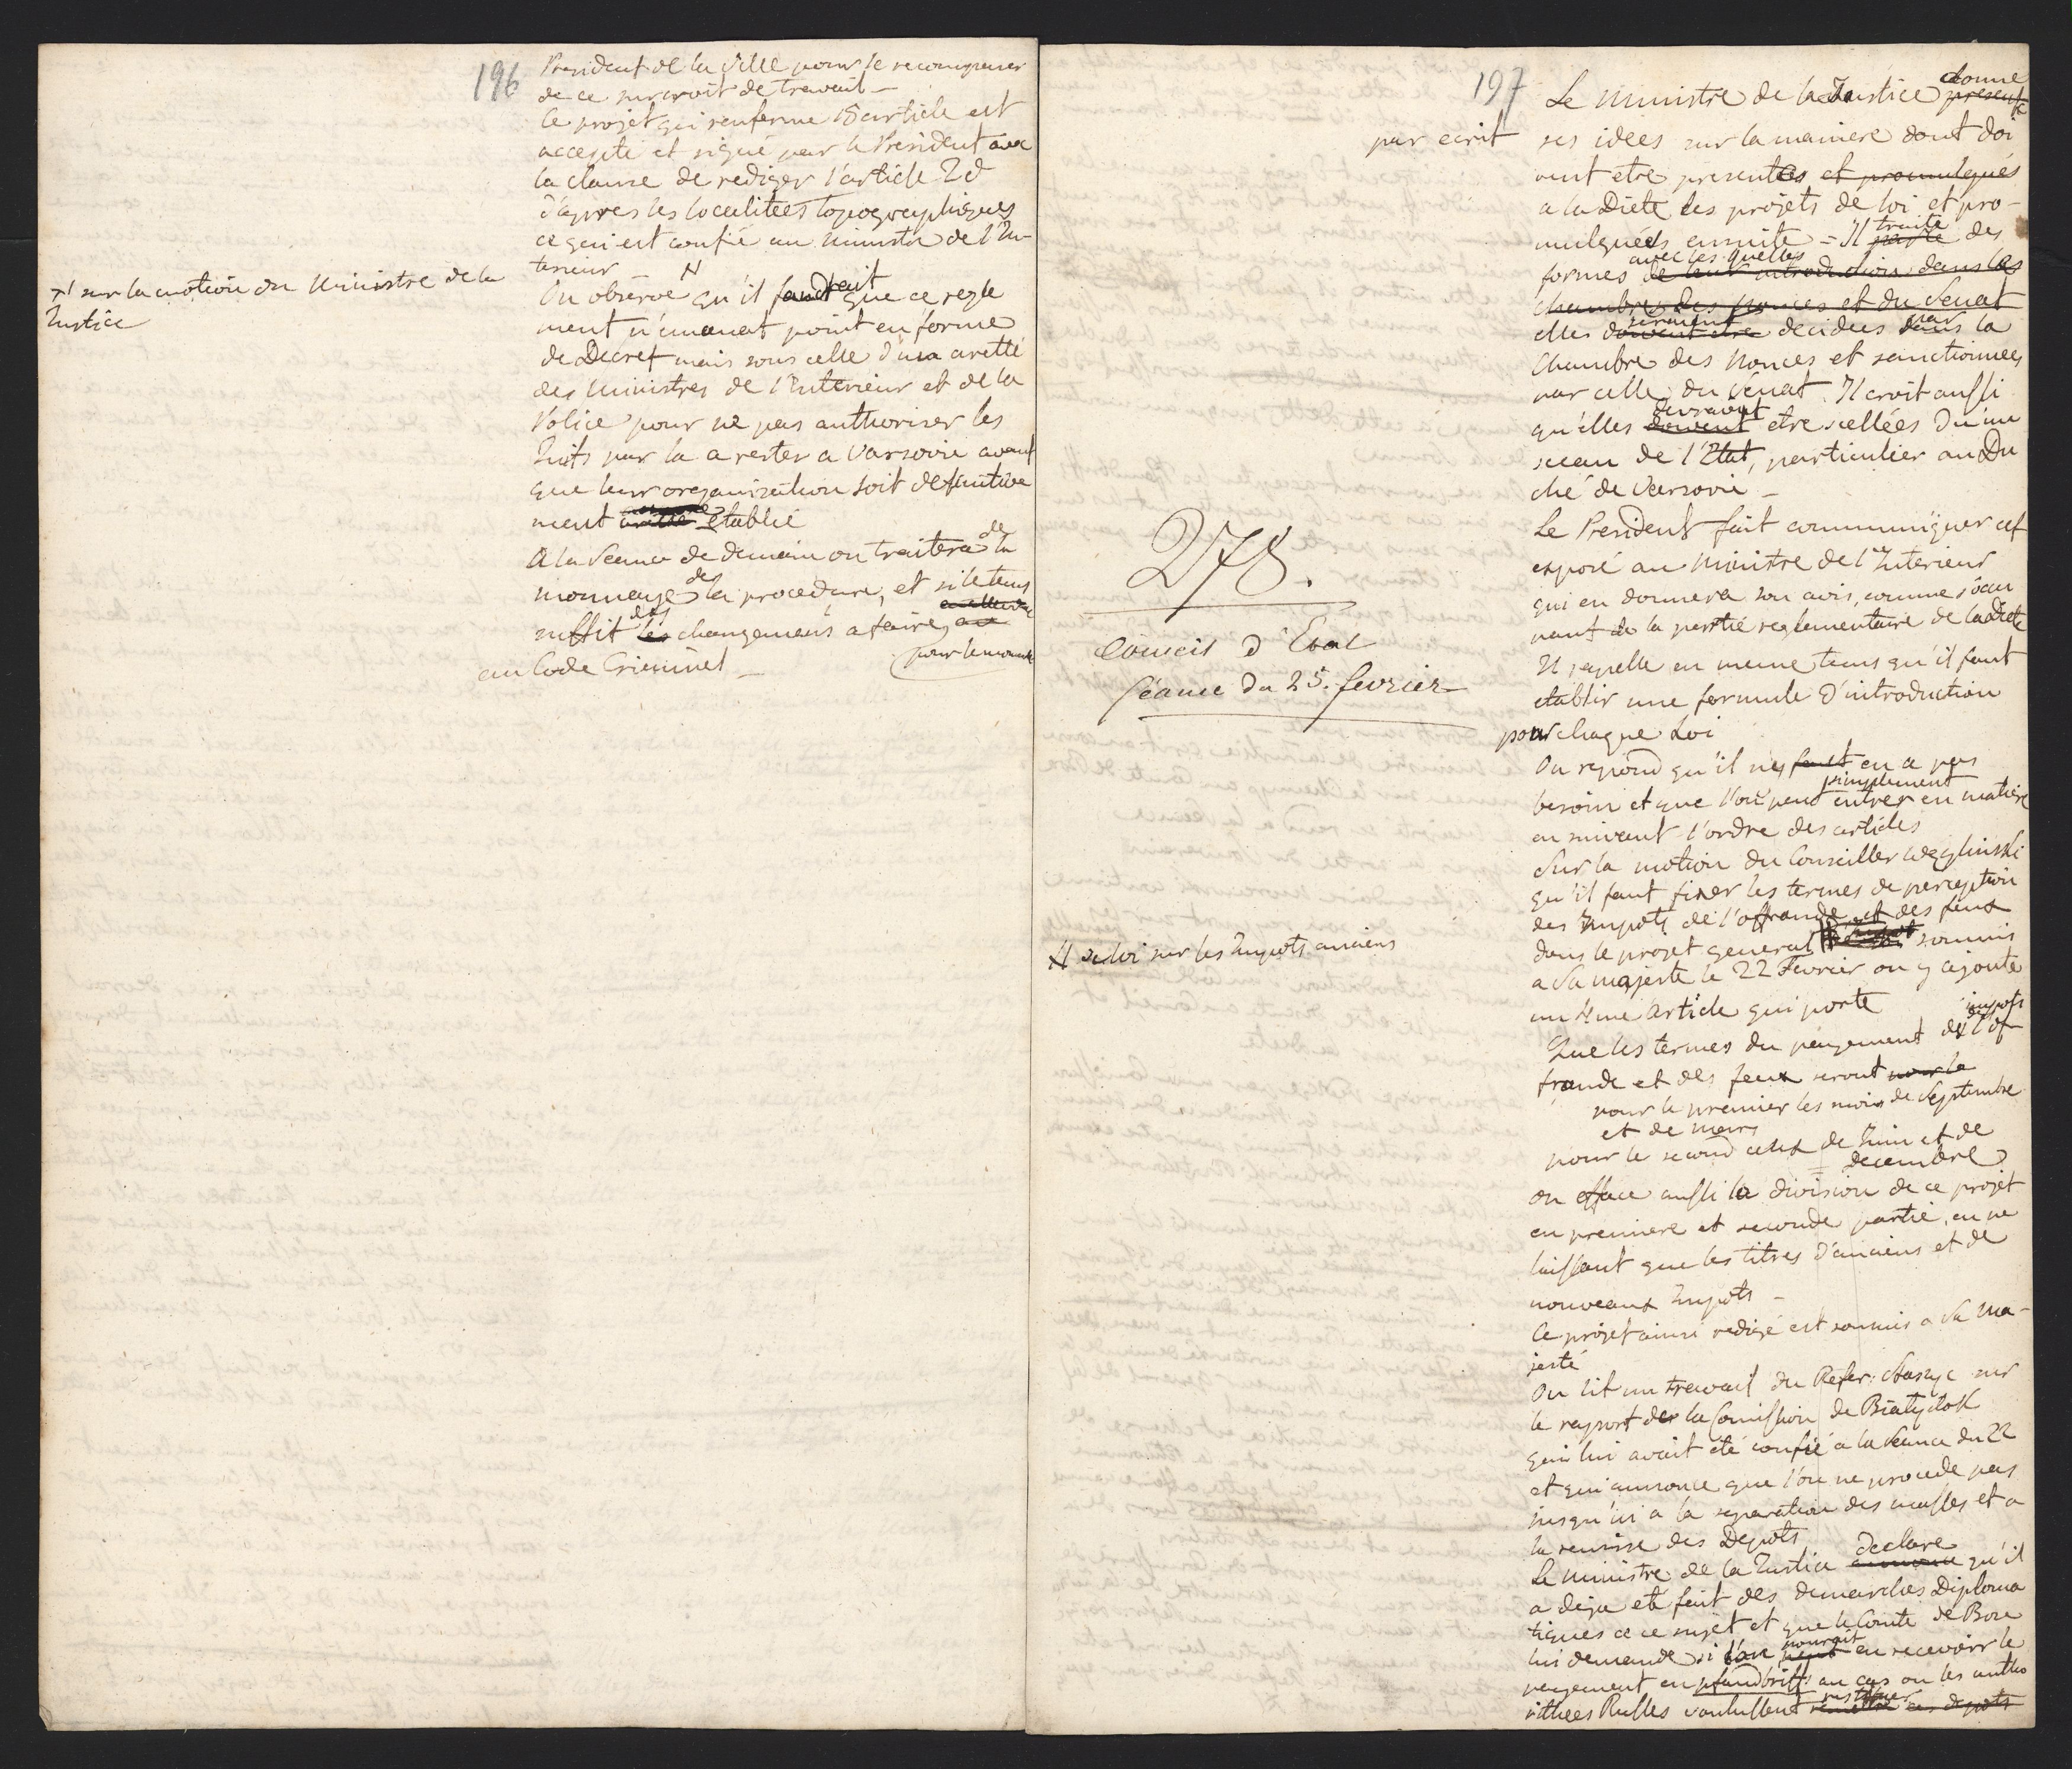 196
President de la Ville pour le recompenser
de ce surcroit de travail —
Ce projet qui renferme 15 article est
accepté et signé par le President avec
la clause de rediger l'article 2d
d'apres les localitees topographiques
ce qui est confié au ministre de l'In-
terieur —
On observe qu'il faudrait que ce regle
ment n'emanat point en forme
de Decret mais sous celle d'un aretté
des Ministres de l'Interieur et de la
Police pour ne pas authoriser les
Juifs par la a rester a Varsovie avant
que leur organisation soit definitive
ment etablie
A la Seance de demain on traitera de la
monnaye de la procedure, et si le tems
suffit des changemens a faire
pour le moment
au Code Criminel —
sur la motion du Ministre de la
Justice
197
Le Ministre de la Justice donne
presente
par ecrit
ses idées sur la maniere dont doi
vent etre presentées et promulgués
a la Diete les projets de loi et pro-
mulguées ensuite = Il traite des
formes avec les quelles
de leur introduction dans les
chambres des nonces et du Senat
elles seraient decidées par la
doivent etre dans
Chambre des Nonces et sanctionnées
par celle du Sénat. Il croit aussi
qu'elles devraient etre scellées d'un
doivent
sceau de l'Etat, particulier au Du
ché de Varsovie —
Le President fait communiquer cet
exposé au Ministre de l'Interieur
qui en donnera son avis, comme s'ocu
pant de la partie reglementaire de la Diete
Il rapelle en meme tems qu'il faut
etablir une formule d'introduction
pour chaque Loi
On repond qu'il n'y en a pas
besoin et que l'on peut simplement entrer en matiere
en suivant l'ordre des articles
Sur la motion du Conseiller Węgliński
qu'il faut fixer les termes de perception
des Impots de l'offrande et des feux
dans le projet general soumis
a Sa Majesté le 22 Fevrier on y ajoute
un 4me Article qui porte
Que les termes du payement des impots de l'of
frande et des feux seront pour le
pour le premier les mois de Septembre
et de Mars
pour le second ceux de Juin et de
Decembre
on efface aussi la division de ce projet
en premiere et seconde partie, en ne
laissant que les titres d'anciens et de
nouveaux Impots —
Ce projet ainsi redigé est soumis a Sa Ma-
jesté
On lit un travail du Refer: Staszyc sur
le raport de la Comission de Białystok
qui lui avait été confié a la Seance du 22
et qui annonce que l'on ne procede pas
jusqu'ici a la separation des masses et a
la remise des Depots
Le Ministre de la Justice declare qu'il
annonce
a deja eté fait des demarches Diploma
tiques a ce sujet et que le Comte de Bose
lui demande si l'on pourait en recevoir le
peut
payement en pfandbriffs au cas ou les autho
rithées Russes voulussent restituer
remettre ces depots
278.
Conseil d'Etat
Séance du 25. fevrier
de loi sur les Impots anciens